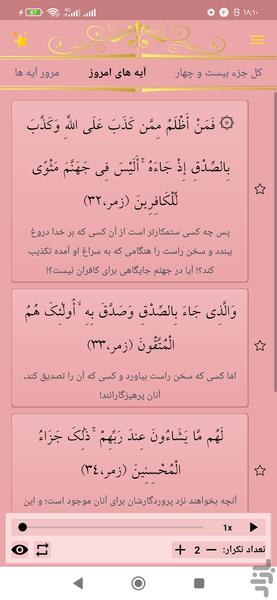 ۱۸:۱۰
87
کل جزء بیست و چهار
آیه های امروز
مرور آیه ها
۞ فَمَنْ أَظْلَمُ مِمَّن كَذَبَ عَلَى اللَّهِ وَكَذَّبَ
بِالصِّدْقِ إِذْ جَاءَهُ ۚ أَلَيْسَ فِي جَهَنَّمَ مَثْوًى
لِّلْكَافِرِينَ (زمر،۳۲)
پس چه کسی ستمکارتر است از آن کسی که بر خدا دروغ
ببندد و سخن راست را هنگامی که به سراغ او آمده تکذیب
کند؟! آیا در جهنم جایگاهی برای کافران نیست؟!
وَالَّذِي جَاءَ بِالصِّدْقِ وَصَدَّقَ بِهِ ۙ أُولَٰئِكَ هُمُ
الْمُتَّقُونَ (زمر،۳۳)
امّا کسی که سخن راست بیاورد و کسی که آن را تصدیق کند،
آنان پرهیزگارانند!
لَهُم مَّا يَشَاءُونَ عِندَ رَبِّهِمْ ۚ ذَٰلِكَ جَزَاءُ
الْمُحْسِنِينَ (زمر،۳٤)
آنچه بخواهند نزد پروردگارشان برای آنان موجود است؛ و این
1x
تعداد تکرار: — 2 +
بازار